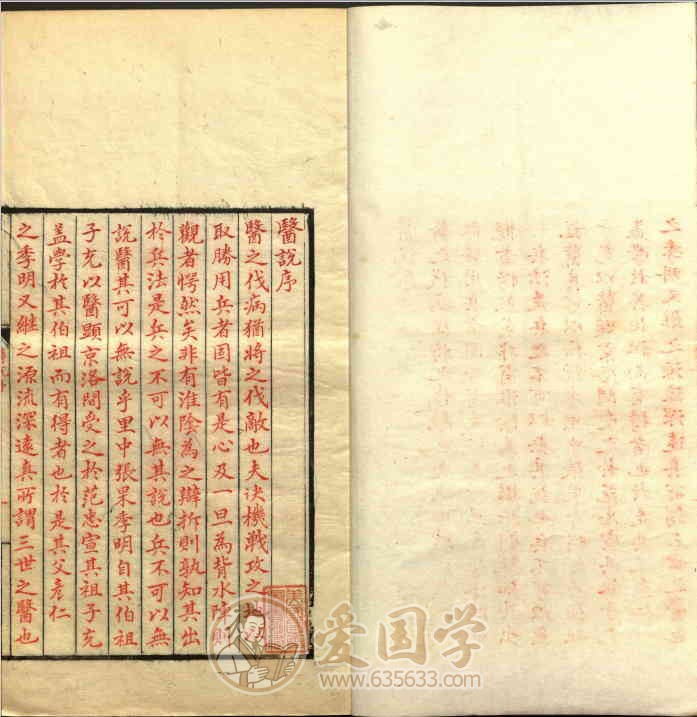 醫說序
醫之伐病猶將之伐敵也夫诀機戰攻之
取勝用兵者固皆有是心及一旦為背水陣則
觀者愕然矣非有淮陰為之辯折則孰知其出
於兵法是兵之不可以無其說也兵不可以無
說醫其可以無說乎里中張杲季明自其伯祖
子充以醫顯京洛間受之於范忠宣其祖子充
盖學於其伯祖而有得者也於是其父彥仁
之季明又継之源流深遠真所謂三世之醫也
爱国学
www.635633.com